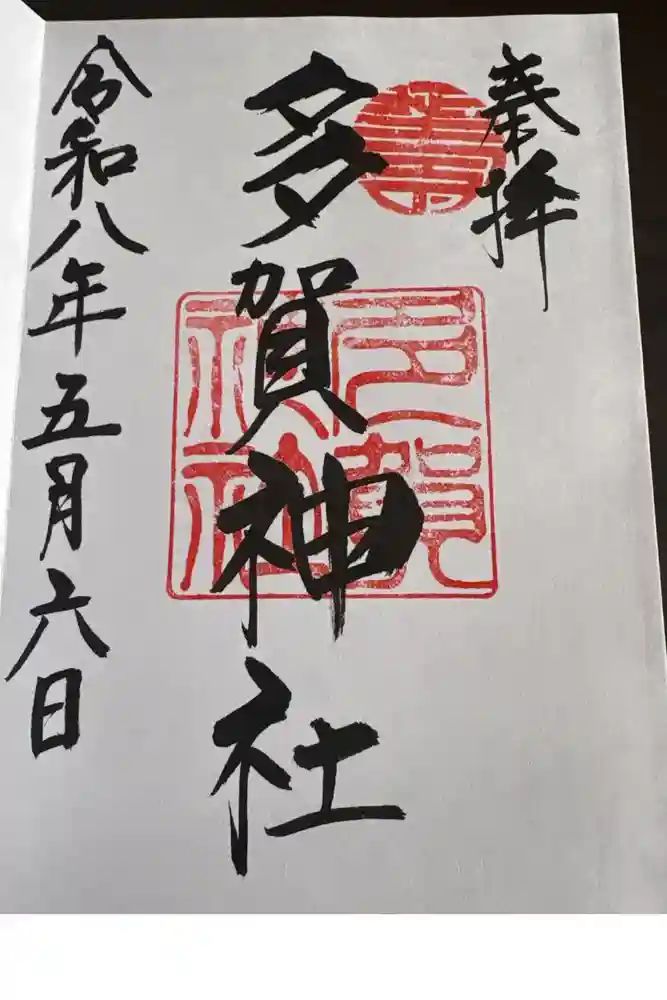 奉拝
多賀神社
令和八年五月六日
多賀
神社